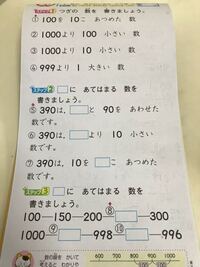 ステップ1 つぎの 数を 書きましょう。
①100を 10こ あつめた 数
②1000より 100 小さい 数
③1000より 10 小さい 数
④999より 1 大きい 数
ステップ2 □に あてはまる 数を
書きましょう。
⑤390は、□と 90を あわせた
数です。
⑥390は、□より 10 小さい
数です。
⑦390は、10を□こ あつめた
数です。
ステップ3 □に あてはまる 数を
書きましょう。
100—150—200—⑧□—300
1000—⑨□—998—⑩□—996
数の線を かいて
600 700 800 900 1000